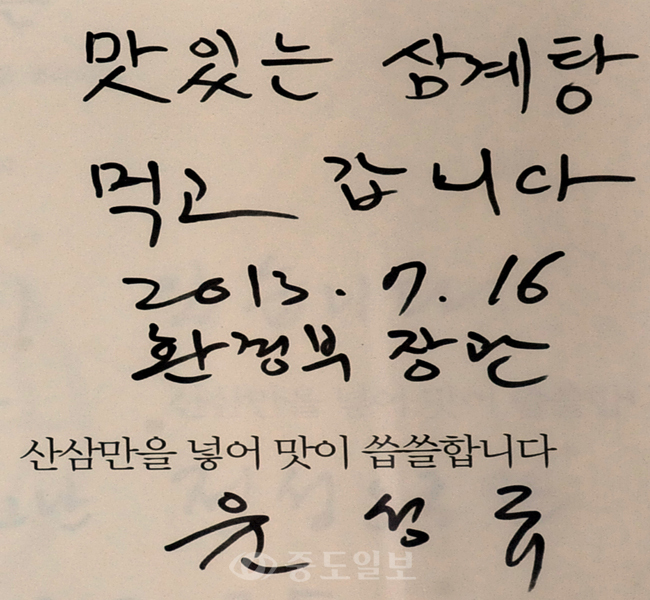 맛있는 삼계탕
먹고 갑니다
2013. 7. 16
환경부 장관
산삼만을 넣어 맛이 씁쓸합니다
윤성규
중도일보